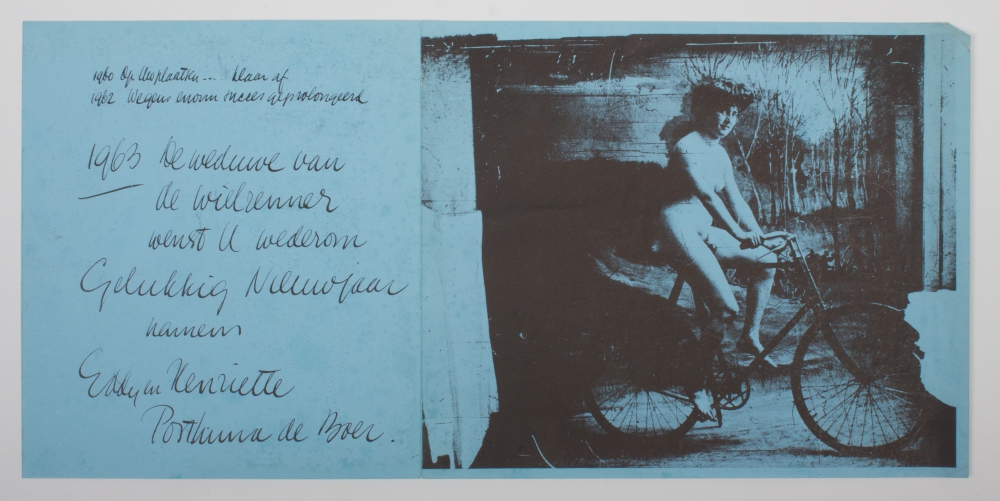 1960 Op Uw plaatsen... klaar af
1962 Wegens enorm succes geprolongeerd
1963 De weduwe van
de wielrenner
wenst U wederom
Gelukkig Nieuwjaar
namens
Eddy en Henriette
Posthuma de Boer.